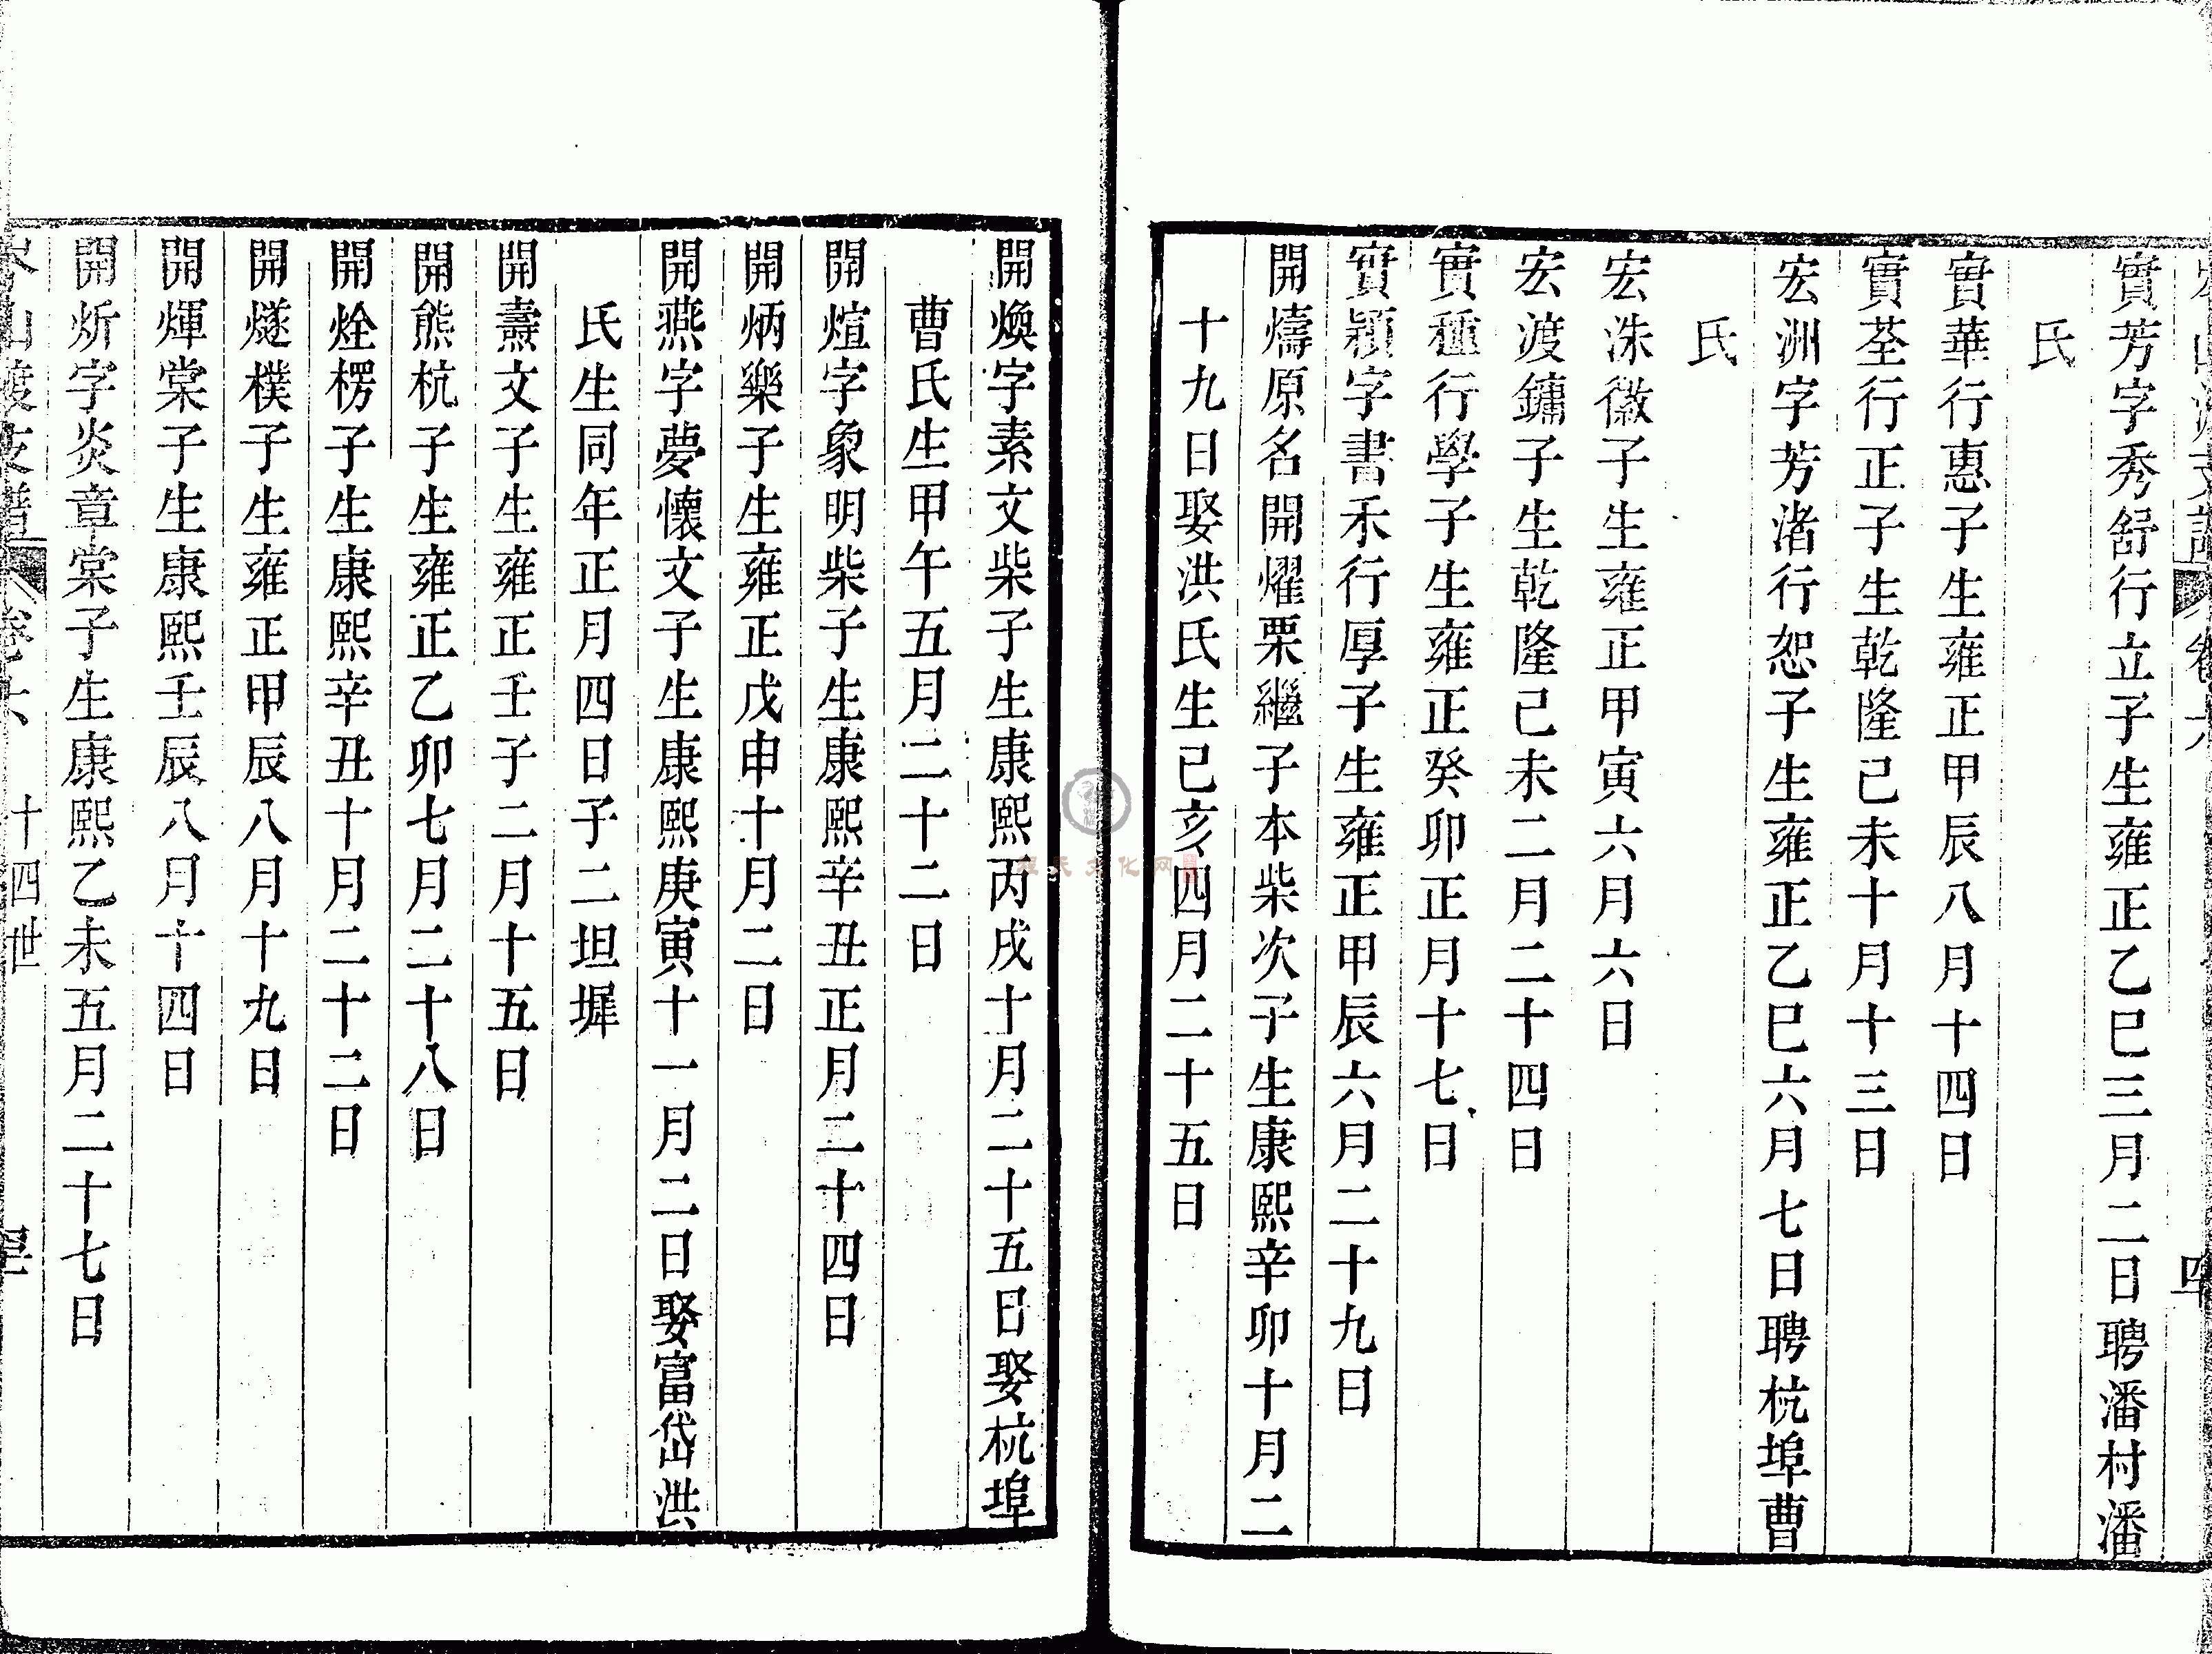 實芳字秀舒行立子生雍正乙巳三月二日聘潘村潘
氏
實華行惠子生雍正甲辰八月十四日
實荃行正子生乾隆己未十月十三日
宏洲字芳渚行恕子生雍正乙巳六月七日聘杭埠曹
氏
宏洙徽子生雍正甲寅六月六日
宏渡鏞子生乾隆己未二月二十四日
實種行學子生雍正癸卯正月十七日
實穎字書禾行厚子生雍正甲辰六月二十九日
開燽原名開燿栗繼子本柴次子生康熙辛卯十月二
十九日娶洪氏生己亥四月二十五日
開煥字素文柴子生康熙丙戌十月二十五日娶杭埠
曹氏生甲午五月二十二日
開煊字象明柴子生康熙辛丑正月二十四日
開炳樂子生雍正戊申十月二日
開燕字夢懷文子生康熙庚寅十一月二日娶富岱洪
氏生同年正月四日子二坦墀
開燾文子生雍正壬子二月十五日
開熊杭子生雍正乙卯七月二十八日
開烇楞子生康熙辛丑十月二十二日
開燧樸子生雍正甲辰八月十九日
開煇棠子生康熙壬辰八月十四日
開炘字炎章棠子生康熙乙未五月二十七日
山 支譜 卷六 十四世